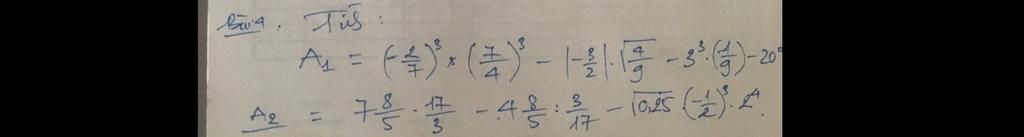 Bài 4. Tính :
A₁ = (-2/7)³ × (7/4)³ - |-3/2| . √(4/9) - 3³ . (1/9) - 20⁰
A₂ = 7 8/5 . 17/3 - 4 8/5 : 3/17 - √0,25 . (-1/2)³ . 2⁴.